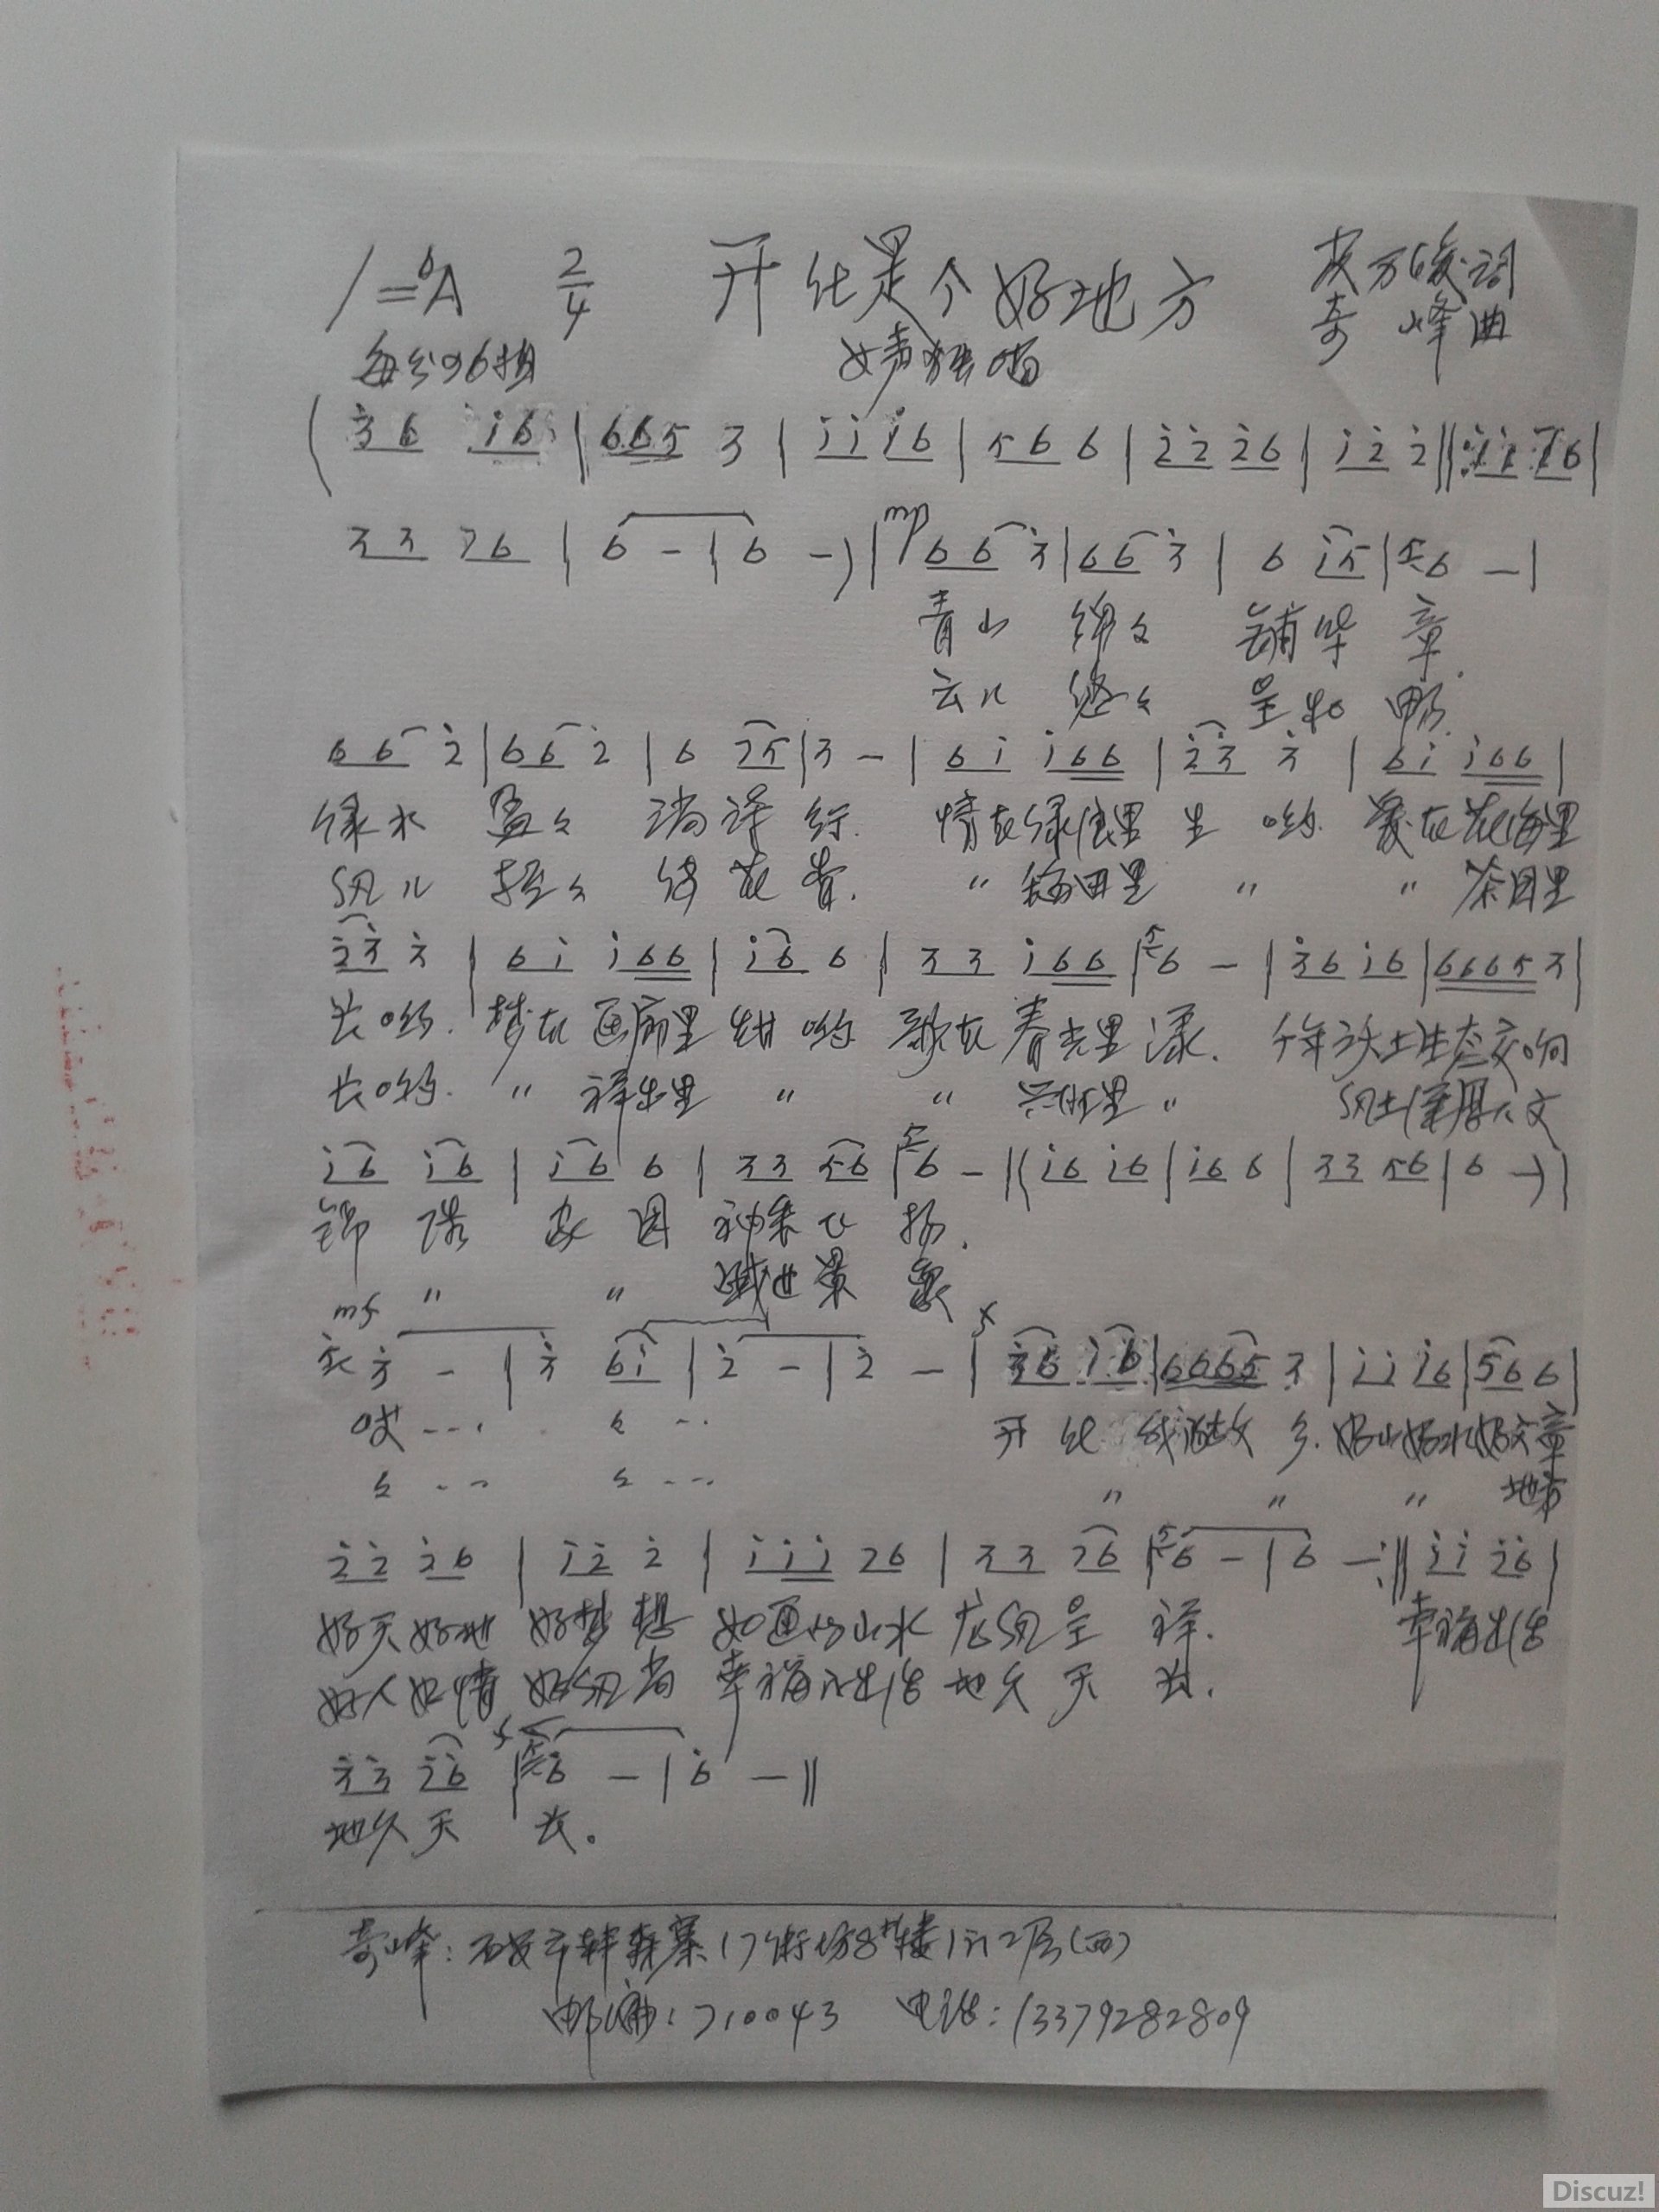 1=♭A 2/4 开化是个好地方 词
每分96拍 女声独唱 奇峰曲
(3̇6 1̇6|665 3|1̇1̇ 1̇6|56 6|2̇2̇ 2̇6|1̇2̇ 2̇‖:1̇1̇ 16|
33 26|6 -|6 -)|mp 66 3̇|66 3̇|6 1̇5|6 -|
青山 绵々 铺华章.
云儿 悠々 呈和
66 2̇|66 2̇|6 25|3 -|61̇ 1̇66|2̇3̇ 3̇|61̇ 1̇66|
绿水 盈々 淌 . 情在绿浪里 生哟. 爱在花海里
风儿 轻々 绕花香. " 稻田里 " " 茶园里
2̇3̇ 3̇|61̇ 1̇66|1̇6 6|33 1̇66|6 -|3̇6 1̇6|6665 3|
长哟. 梦在画廊里 甜哟 歌在春光里漾. 千年沃土生态交响
长哟. " 里 " " 里 " 风土 人文
1̇6 1̇6|1̇6 6|33 56|6 -|(1̇6 1̇6|1̇6 6|33 56|6 -)|
锦绣家园 神采飞扬.
" "
mf f
3̇ -|3̇ 61̇|2̇ -|2̇ -|3̇6 1̇6|6665 3|1̇1̇ 1̇6|56 6|
哎… 々…
々… 々… " " " 地方
开化 我的故乡. 好山好水好文章
2̇2̇ 2̇6|1̇2̇ 2̇|1̇1̇1̇ 26|33 26|6 -|6 -:‖1̇1̇ 2̇6|
好天好地 好梦想 如画的山水 龙凤呈祥. 幸福生活
好人好情 好风尚 幸福的生活 地久天长.
3̇3̇ 2̇6|6̇ -|6̇ -‖
地久天 长。
奇峰: 西安市韩森寨17街坊8楼1门2层(西)
邮编:710043 电话:13379282809
Discuz!